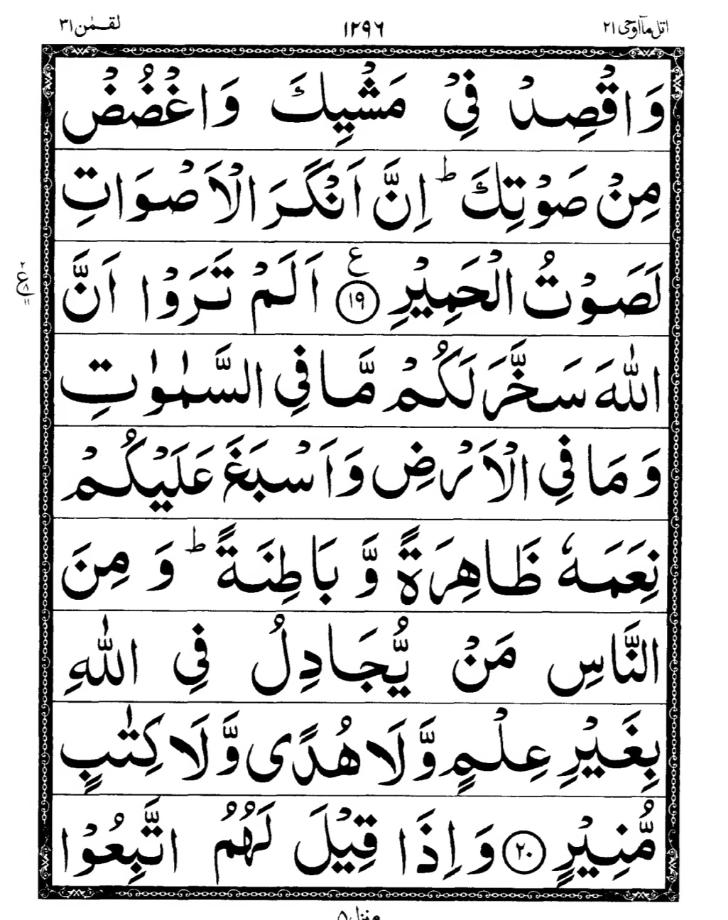 اتل ماۤ اوحی ۲۱ ۱۲۹۶ لقمٰن ۳۱
وَاقْصِدْ فِیْ مَشْیِكَ وَاغْضُضْ
مِنْ صَوْتِكَ ؕ اِنَّ اَنْكَرَ الْاَصْوَاتِ
لَصَوْتُ الْحَمِیْرِ ۱۹ ع اَلَمْ تَرَوْا اَنَّ
۲
ع
۸
۱۱
اللّٰهَ سَخَّرَ لَكُمْ مَّا فِی السَّمٰوٰتِ
وَمَا فِی الْاَرْضِ وَاَسْبَغَ عَلَیْكُمْ
نِعَمَهٗ ظَاهِرَةً وَّ بَاطِنَةً ؕ وَ مِنَ
النَّاسِ مَنْ یُّجَادِلُ فِی اللّٰهِ
بِغَیْرِ عِلْمٍ وَّلَا هُدًی وَّلَا كِتٰبٍ
مُّنِیْرٍ ۲۰ وَ اِذَا قِیْلَ لَهُمُ اتَّبِعُوْا
منزل ۵